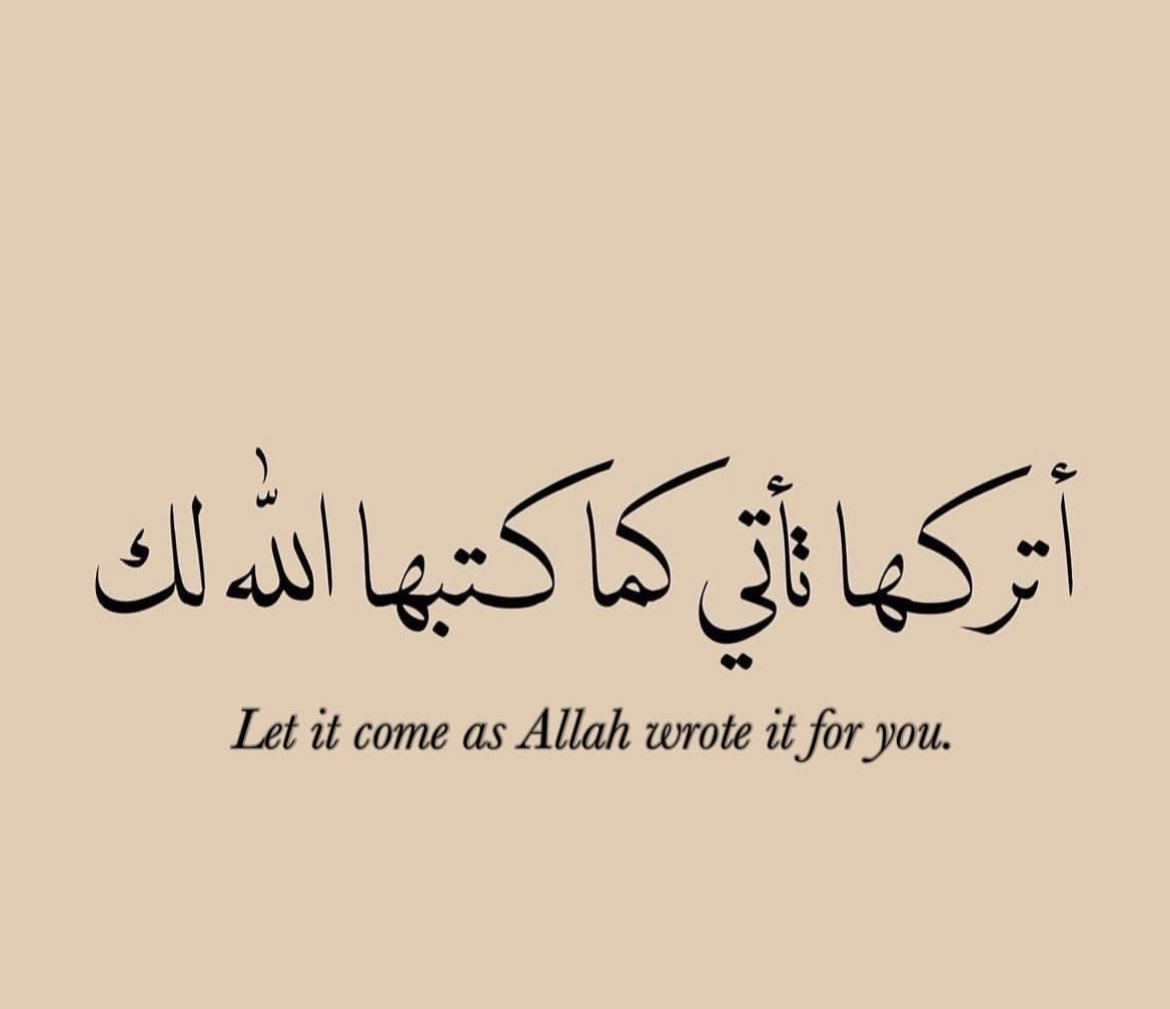 أتركها تأتي كما كتبها اللّٰه لك
Let it come as Allah wrote it for you.